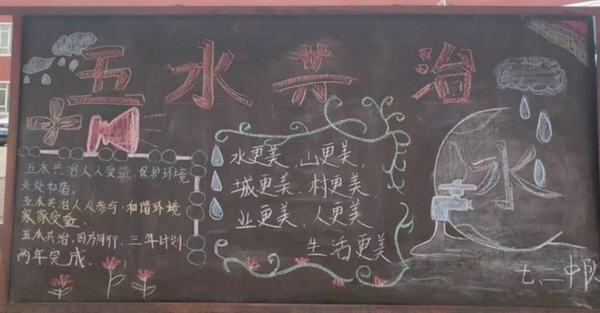 五水共治
五水共治人人受益,保护环境
处处和谐。
五水共治人人参与,和谐环境
家家受益。
五水共治,四方同行,三年计划
两年完成。
水更美、山更美、
城更美、村更美、
业更美、人更美、
生活更美
水
七、二中队